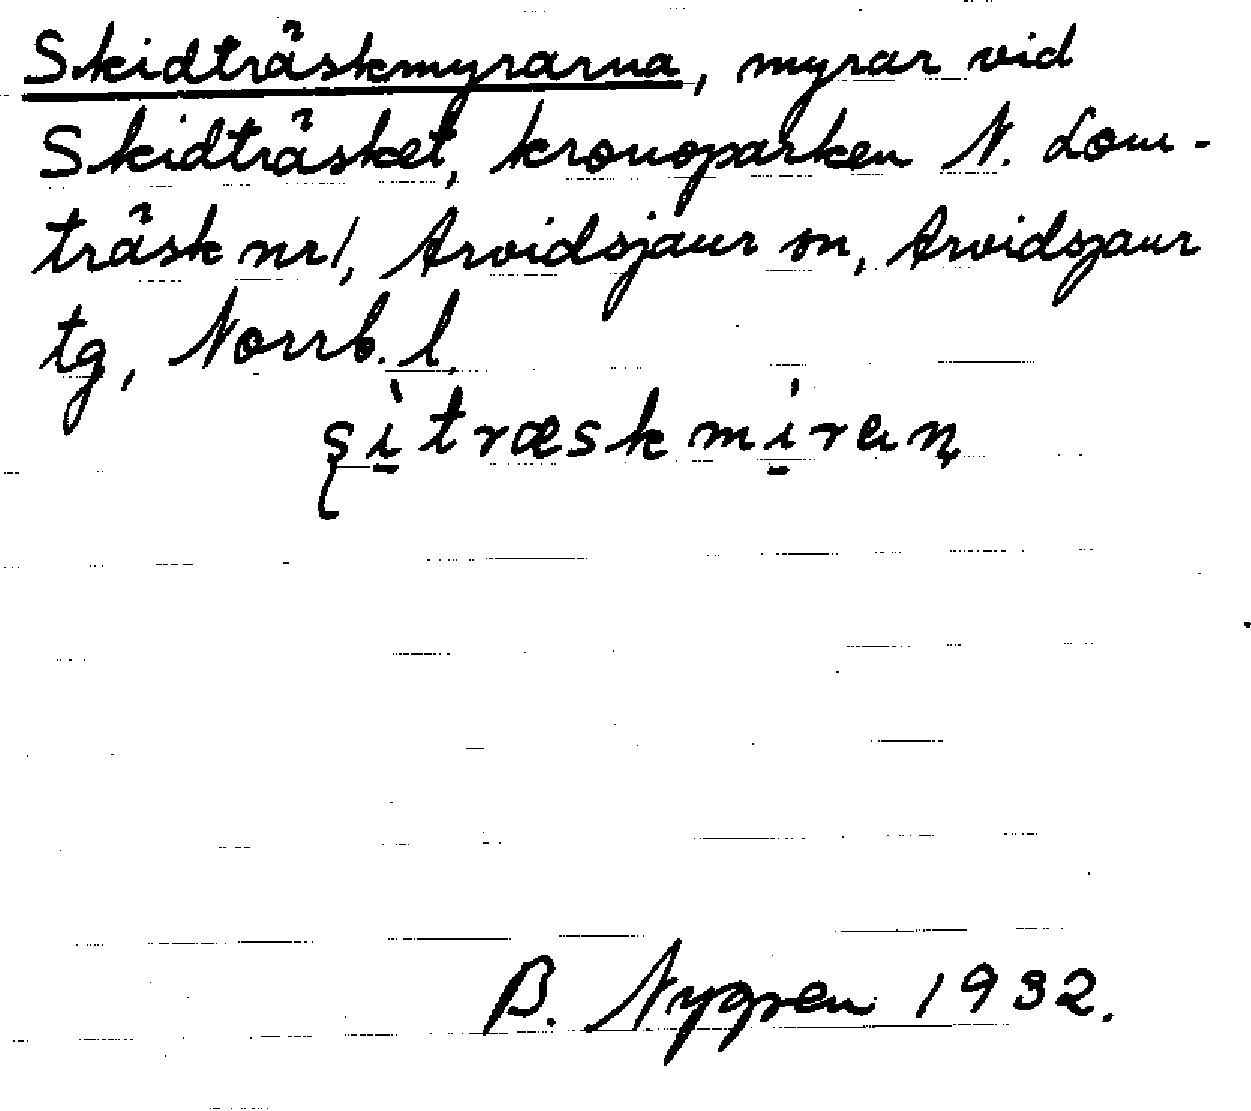 Skidträskmyrarna, myrar vid
Skidträsket, kronoparken N. Lom-
träsk nr 1, Arvidsjaur sn, Arvidsjaur
tg, Norrb. l.
ʂì̲træskmí̲raɳ
B. Nygren 1932.